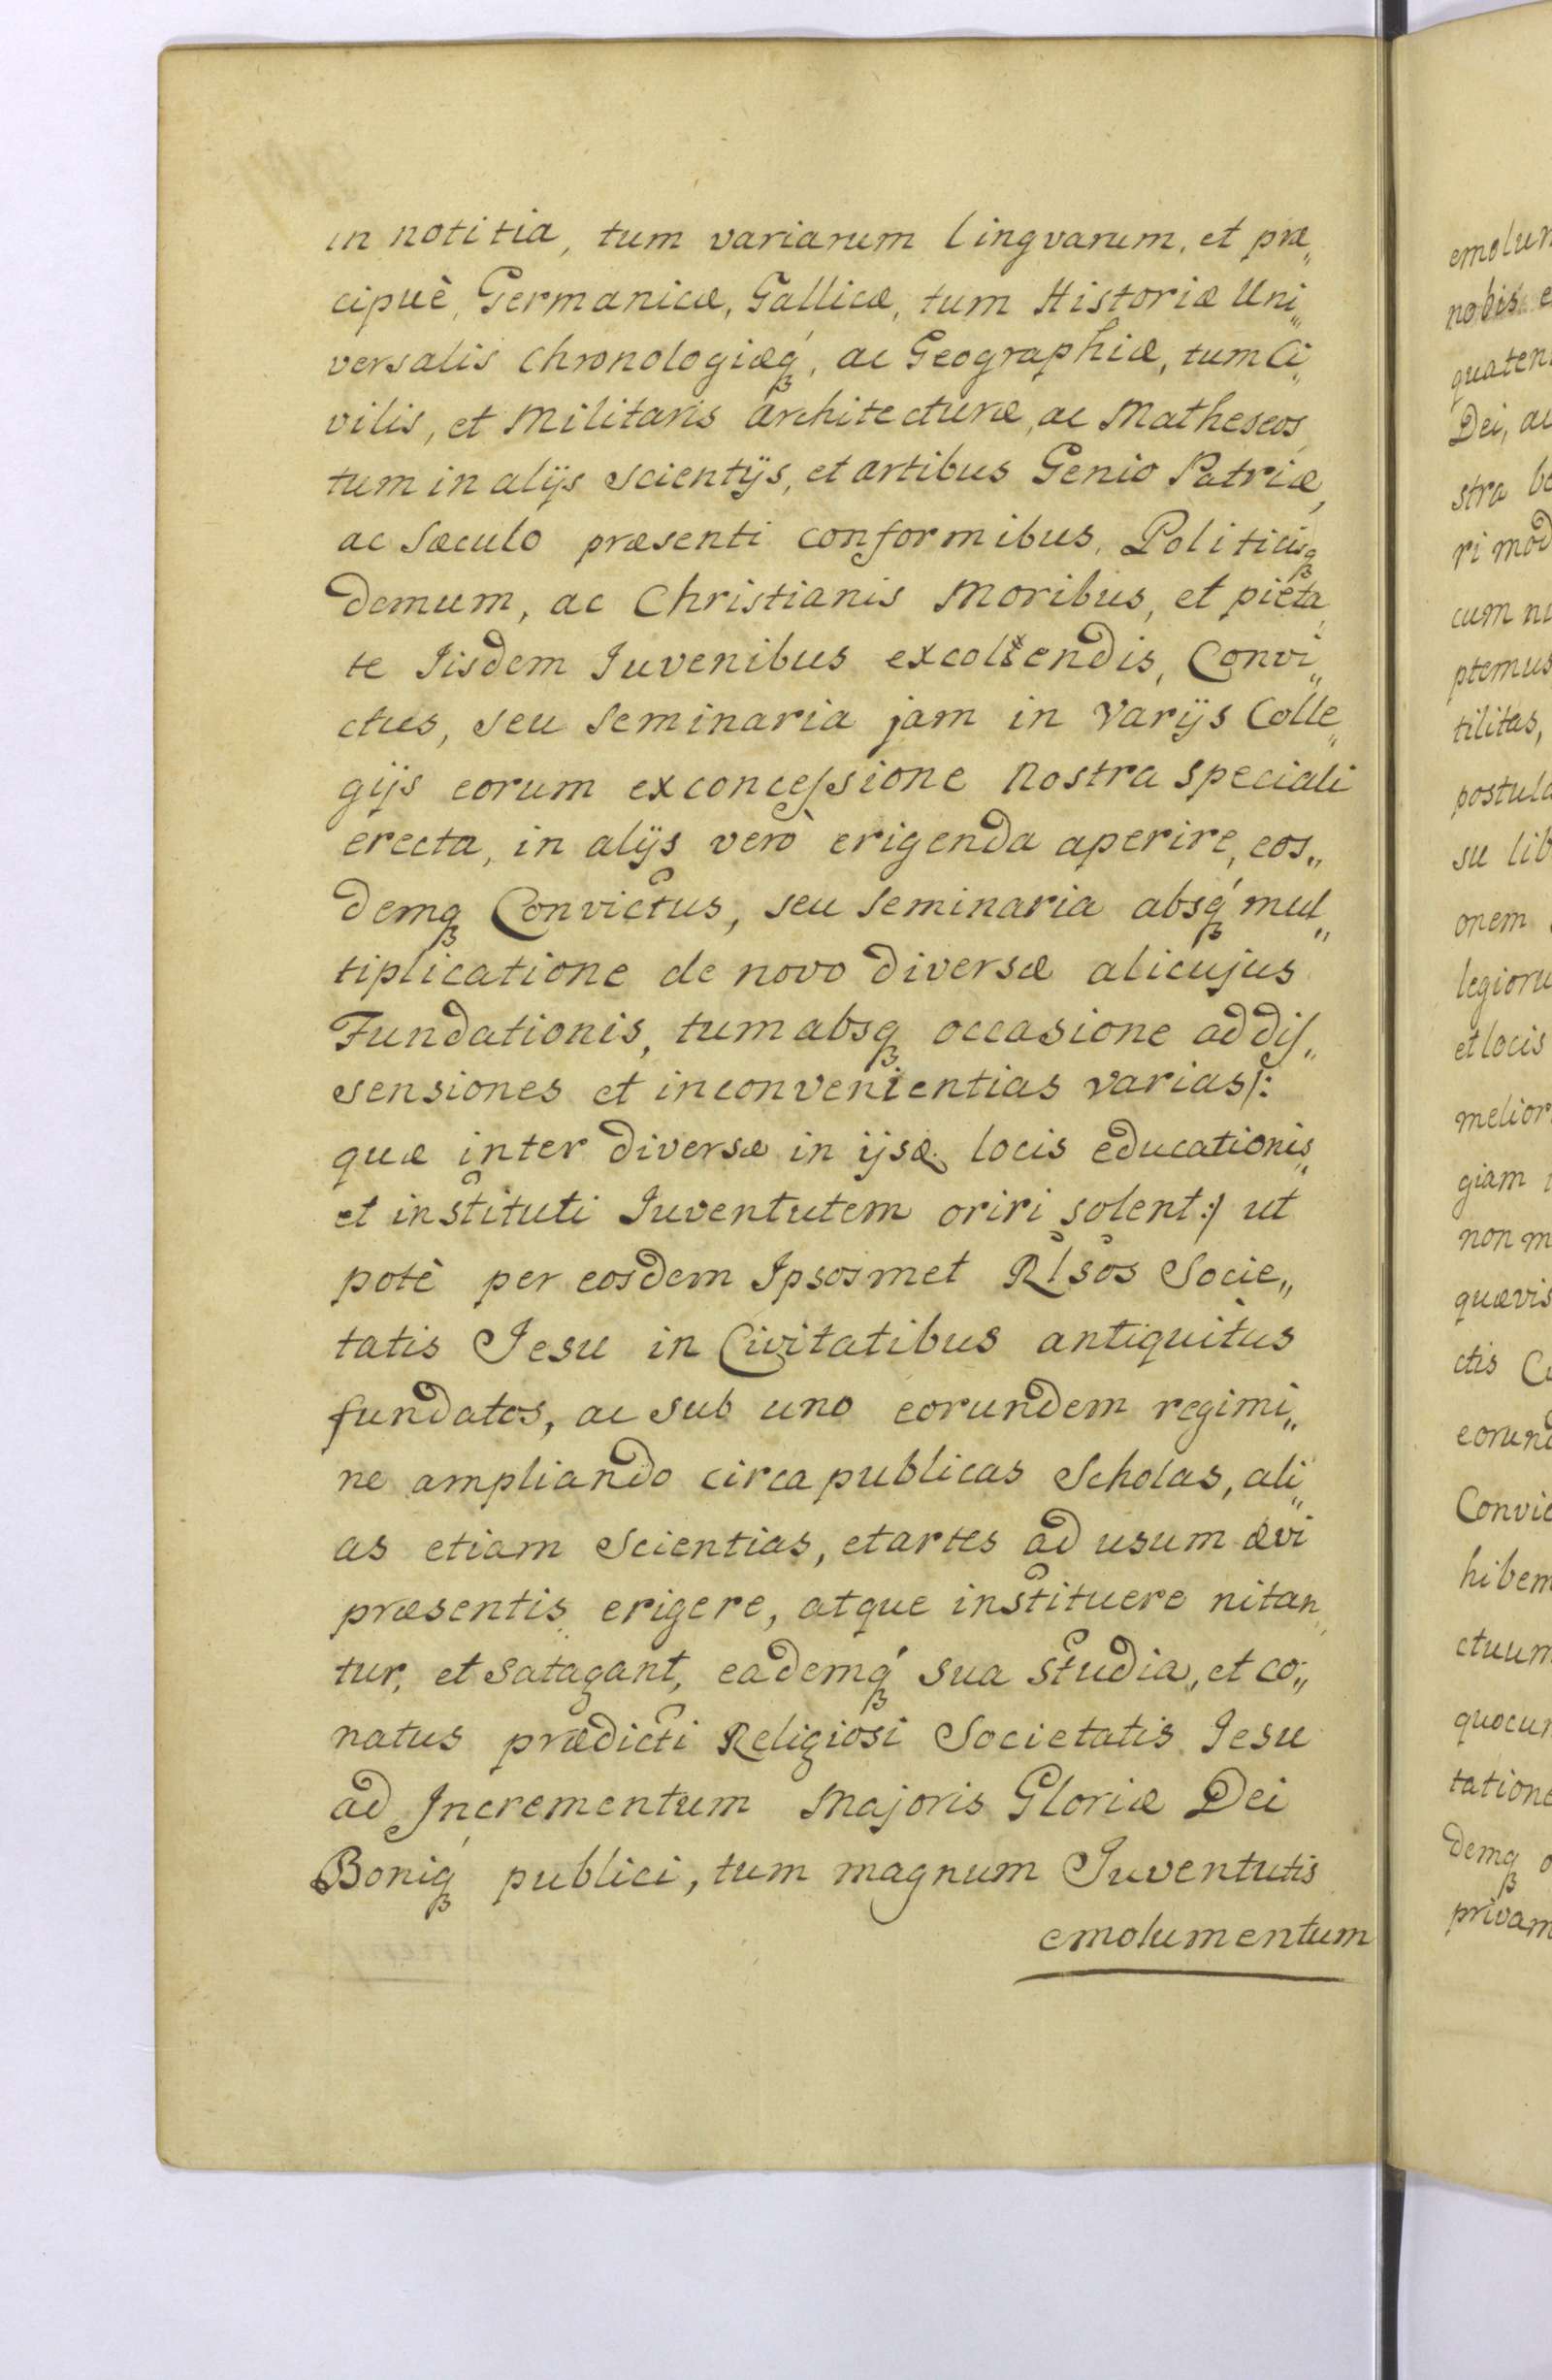 in notitia, tum variarum Lingvarum, et præ„
cipuè, Germanicæ, Gallicæ, tum Historiæ Uni„
versalis Chronologiæq́ꝫ, ac Geographiæ, tum Ci„
vilis, et Militaris Architecturæ, ac Matheseos,
tum in alijs scientijs, et artibus Genio Patriæ,
ac Sæculo præsenti conformibus, Politicisqꝫ
demum, ac Christianis Moribus, et pieta„
te Iisdem Juvenibus excollendis, Convi„
ctus, seu Seminaria jam in Varijs Colle„
gijs eorum exconcessione Nostra speciali
erecta, in alijs verò erigenda aperire, eos„
demqꝫ Convictus, seu Seminaria absq́ꝫ mul„
tiplicatione de novo diversæ alicujus
Fundationis, tum absqꝫ occasione ad dis„
sensiones et inconvenientias varias /:
quæ inter diversæ in ijsd. locis educationis„
et instituti Juventutem oriri solent :/ ut
potè per eosdem Ipsosmet Rlsos Socie„
tatis Jesu in Civitatibus antiquitùs
fundatos, ac sub uno eorundem regimi„
ne ampliando circa publicas Scholas, ali„
as etiam Scientias, et artes ad usum ævi
præsentis erigere, atque instituere nitan„
tur, et satagant, eademq́ꝫ sua studia, et co„
natus prædicti Religiosi Societatis Jesu
ad Incrementum Majoris Gloriæ Dei
Boniq́ꝫ publici, tum magnum Juventutis
emolumentum
nobis e
Dei, ac
stra be
ri mod
cum ni
ptemus
tilitas,
postula
su lib
onem
legioru
et locis
melior
giam
non m
quævis
ctis C
eorund
Convic
hibem
ctuum
quocun
tatione
demqꝫ
privam